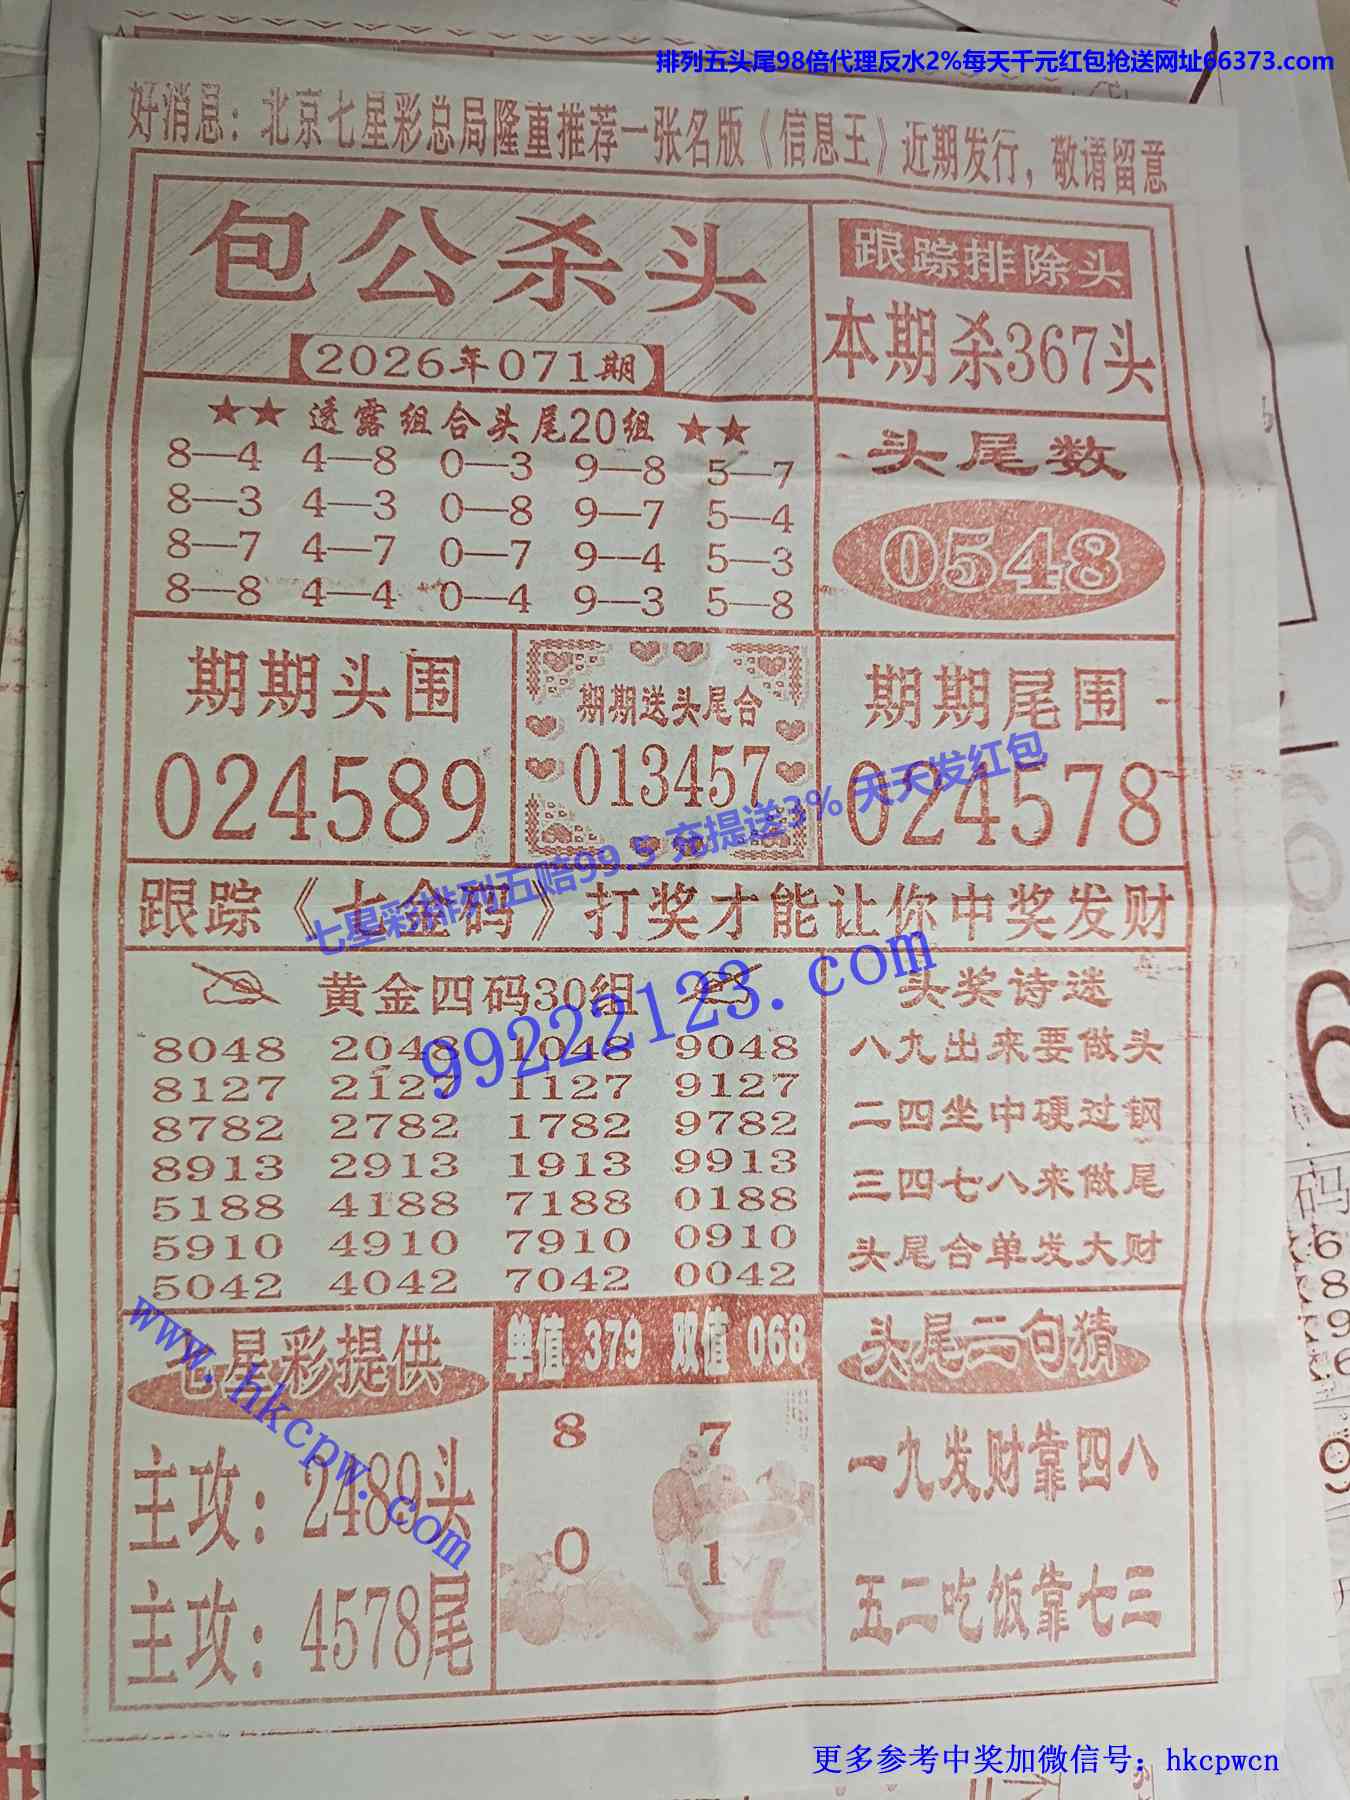 排列五头尾98倍代理反水2%每天千元红包抢送网址66373.com
好消息：北京七星彩总局隆重推荐一张名版《信息王》近期发行，敬请留意
包公杀头
2026年071期
跟踪排除头
本期杀367头
★★ 透露组合头尾20组 ★★
8—4 4—8 0—3 9—8 5—7
8—3 4—3 0—8 9—7 5—4
8—7 4—7 0—7 9—4 5—3
8—8 4—4 0—4 9—3 5—8
头尾数
0548
期期头围
024589
期期送头尾合
013457
期期尾围
024578
七星彩排列五赔99.5 充提送3% 天天发红包
跟踪《七金码》打奖才能让你中奖发财
99222123.com
黄金四码30组
8048 2048 1048 9048
8127 2127 1127 9127
8782 2782 1782 9782
8913 2913 1913 9913
5188 4188 7188 0188
5910 4910 7910 0910
5042 4042 7042 0042
头奖诗迷
八九出来要做头
二四坐中硬过钢
三四七八来做尾
头尾合单发大财
www.hkcpw.com
七星彩提供
主攻：2489头
主攻：4578尾
单值 379 双值 068
8 7
0 1
头尾二句猜
一九发财靠四八
五二吃饭靠七三
更多参考中奖加微信号：hkcpwcn